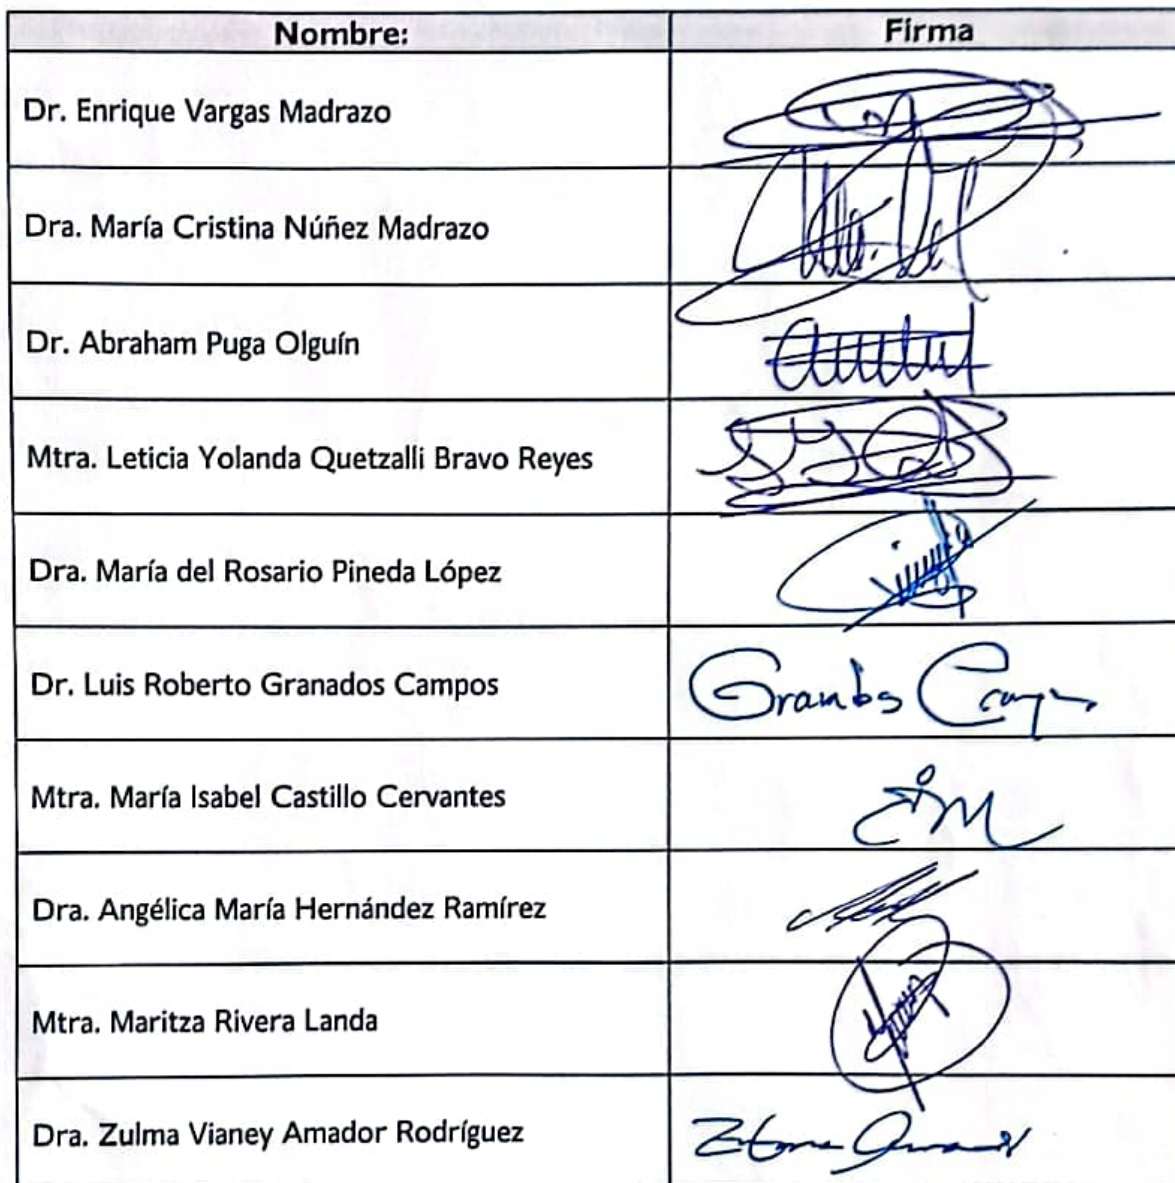 Nombre: Firma
Dr. Enrique Vargas Madrazo
Dra. María Cristina Núñez Madrazo
Dr. Abraham Puga Olguín
Mtra. Leticia Yolanda Quetzalli Bravo Reyes
Dra. María del Rosario Pineda López
Dr. Luis Roberto Granados Campos
Mtra. María Isabel Castillo Cervantes
Dra. Angélica María Hernández Ramírez
Mtra. Maritza Rivera Landa
Dra. Zulma Vianey Amador Rodríguez